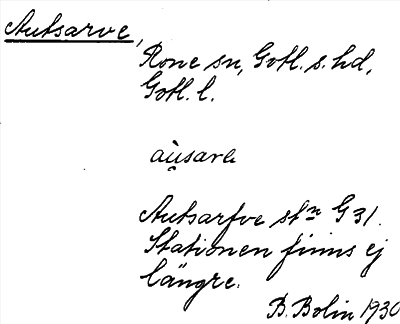 Autsarve,
Rone sn, Gotl. s. hd,
Gotl. l.
aùsarα
Autsarfve stn G 31.
Stationen finns ej
längre.
B. Bolin 1930